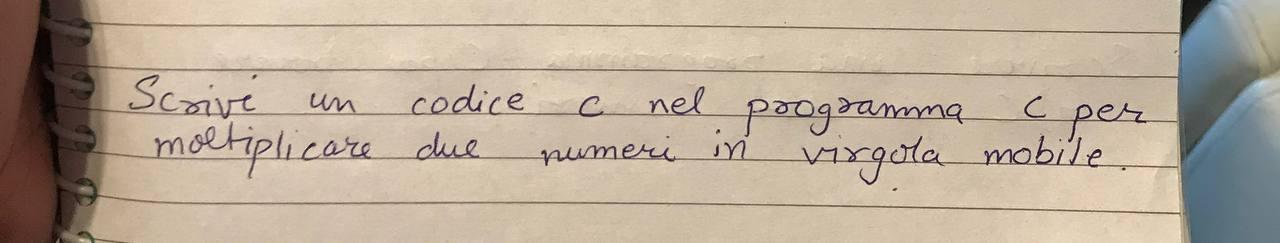 Scrivi un codice c nel programma C per
moltiplicare due numeri in virgola mobile.